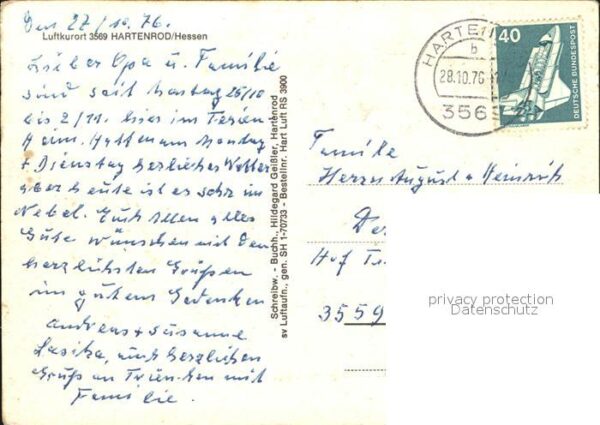 Den 27/10.76.
Luftkurort 3569 HARTENROD/Hessen
Lieber Opa u. Familie
sind seit Montag 25/10
bis 2/11. hier im Ferien
Heim. Hatten am Montag
+ Dienstag herliches Wetter
aber heute ist es sehr im
Nebel. Euch allen alles
Gute wünschen mit den
herzlichsten Grüßen
im gutem Gedenken
Andreas + Susanne
und herzlichen
Gruß an mit
Familie.
Schreibw. - Buchh., Hildegard Geißler, Hartenrod
sv Luftaufn., gen. SH 1-70733 - Bestellnr. Hart Luft RS 3900
HARTEN
b
28.10.76
3569
40
DEUTSCHE BUNDESPOST
Familie
Herrn August u Heinrich
De
Hof
3559
privacy protection
Datenschutz